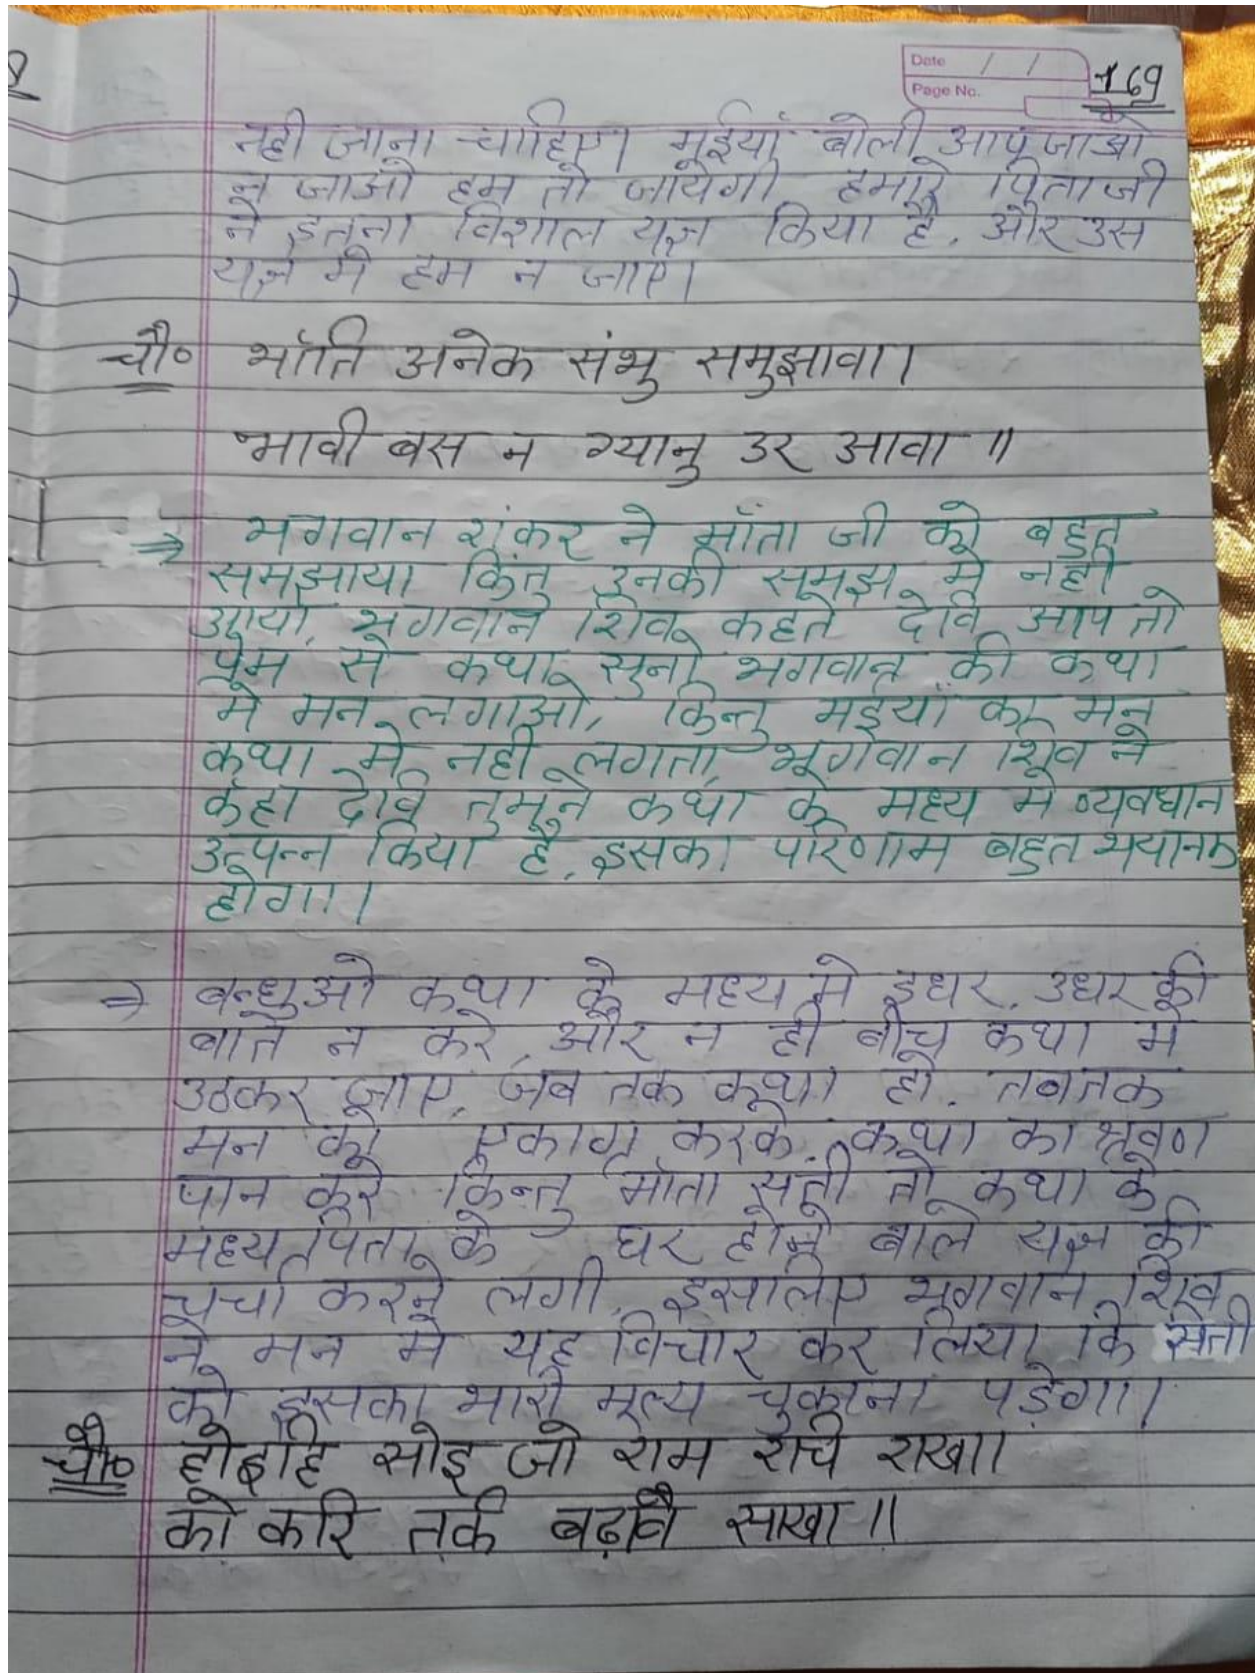 Date / /
Page No.
169
नही जाना चाहिए। मईयाँ बोली आप जाओ
न जाओ हम तो जायेगी हमारे पिता जी
ने इतना विशाल यज्ञ किया है, और उस
यज्ञ मे हम न जाए।
चौ० भाँति अनेक संभु समुझावा।
भावी बस न ग्यानु उर आवा ॥
⇒ भगवान शंकर ने माँता जी को बहुत
समझाया किंतु उनकी समझ मे नही
आया, भगवान शिव कहते देवि आप तो
प्रेम से कथा सुनो भगवान की कथा
मे मन लगाओ, किन्तु मइयाँ का मन
कथा मे नही लगता, भगवान शिव ने
कहा देवि तुमने कथा के मध्य मे व्यवधान
उत्पन्न किया है, इसका परिणाम बहुत भयानक
होगा।
⇒ बन्धुओ कथा के मध्य मे इधर, उधर की
बाते न करे, और न ही बीच कथा मे
उठकर जाए, जब तक कथा हो, तबतक
मन को एकाग्र करके, कथा का श्रवण
पान करे किन्तु माँता सती तो कथा के
मध्य पिता के घर होने बाले यज्ञ की
चर्चा करने लगी, इसलिए भगवान शिव
ने मन मे यह विचार कर लिया कि सती
को इसका भारी मूल्य चुकाना पड़ेगा।
चौ० होइहि सोइ जो राम रचि राखा।
को करि तर्क बढ़ावै साखा ॥